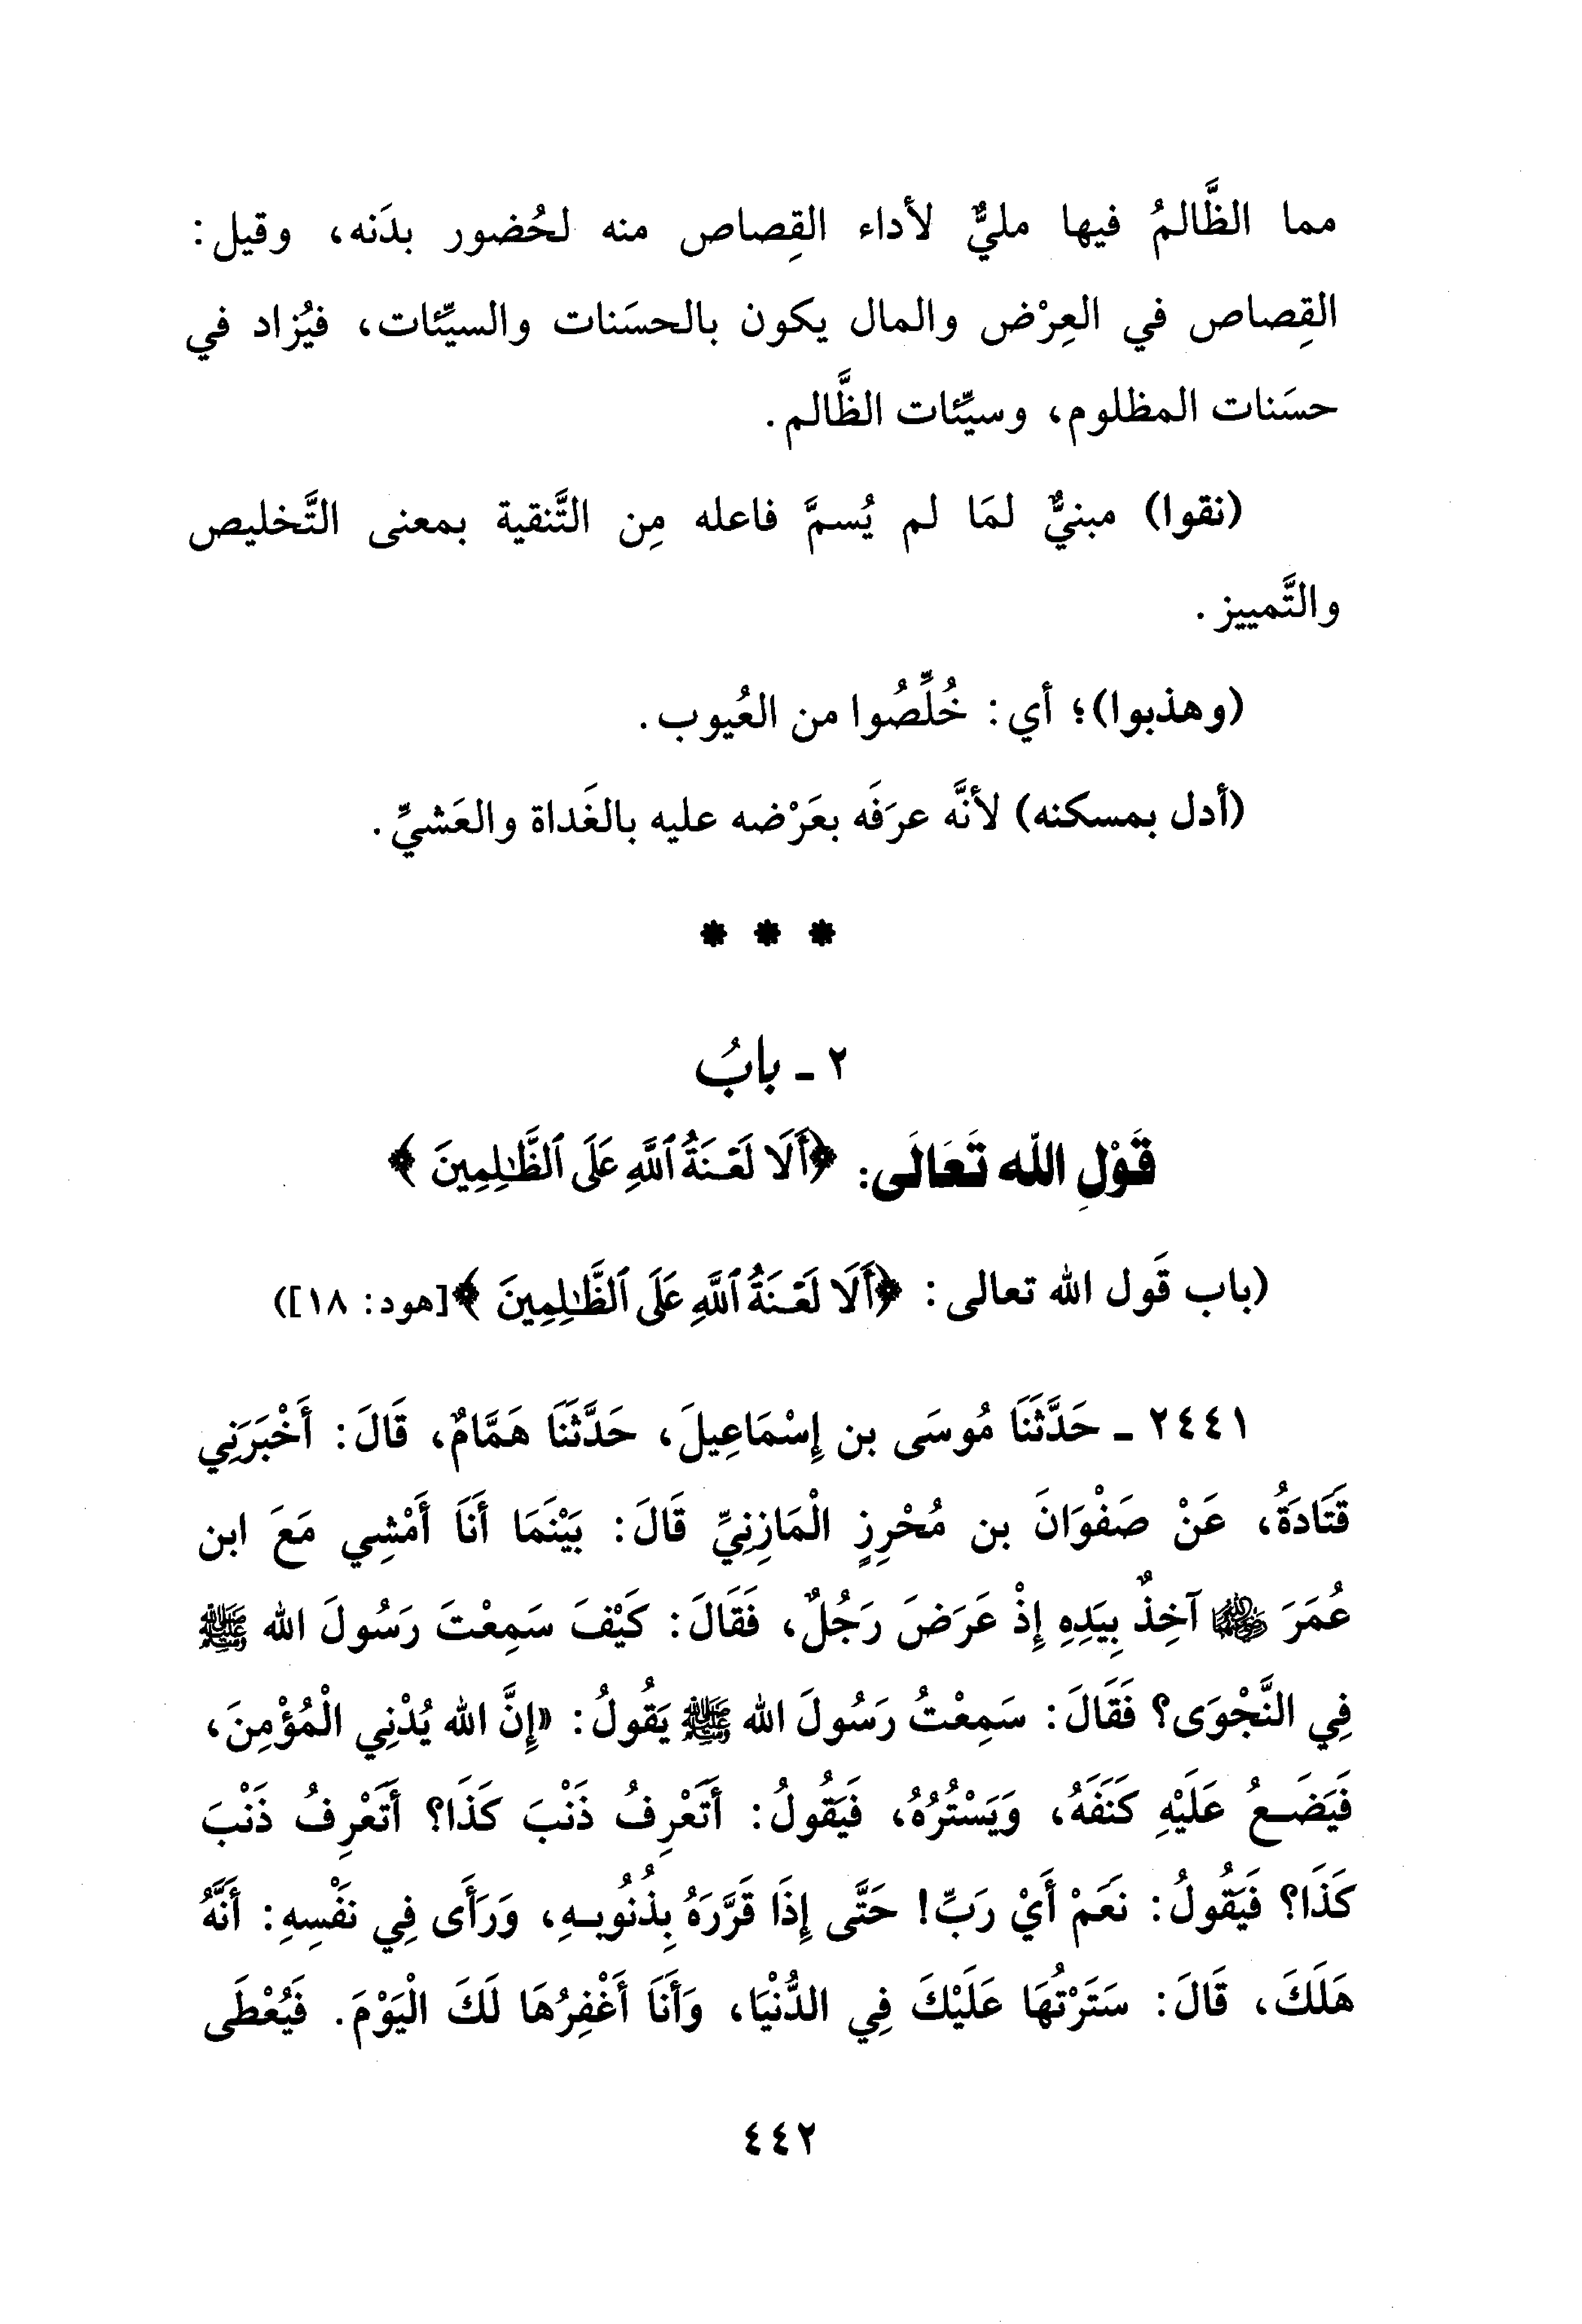 مما الظَّالمُ فيها مليٌّ لأداء القِصاص منه لحُضور بدَنه، وقيل:
القِصاص في العِرْض والمال يكون بالحسَنات والسيِّئات، فيُزاد في
حسَنات المظلوم، وسيِّئات الظَّالم.
(نقوا) مبنيٌّ لمَا لم يُسمَّ فاعله مِن التَّنقية بمعنى التَّخليص
والتَّمييز.
(وهذبوا)؛ أي: خُلِّصُوا من العُيوب.
(أدل بمسكنه) لأنَّه عرَفَه بعَرْضه عليه بالغَداة والعَشيِّ.
* * *
٢ - بابُ
قَوْلِ الله تَعَالَى: ﴿أَلَا لَعْنَةُ ٱللَّهِ عَلَى ٱلظَّٰلِمِينَ﴾
(باب قَول الله تعالى: ﴿أَلَا لَعْنَةُ ٱللَّهِ عَلَى ٱلظَّٰلِمِينَ﴾[هود: ١٨])
٢٤٤١ - حَدَّثَنَا مُوسَى بن إِسْمَاعِيلَ، حَدَّثَنَا هَمَّامٌ، قَالَ: أَخْبَرَنِي
قَتَادَةُ، عَنْ صَفْوَانَ بن مُحْرِزٍ الْمَازِنِيِّ قَالَ: بَيْنَمَا أَنَا أَمْشِي مَعَ ابن
عُمَرَ ﵄ آخِذٌ بِيَدِهِ إِذْ عَرَضَ رَجُلٌ، فَقَالَ: كَيْفَ سَمِعْتَ رَسُولَ الله ﷺ
فِي النَّجْوَى؟ فَقَالَ: سَمِعْتُ رَسُولَ الله ﷺ يَقُولُ: «إِنَّ الله يُدْنِي الْمُؤْمِنَ،
فَيَضَعُ عَلَيْهِ كَنَفَهُ، وَيَسْتُرُهُ، فَيَقُولُ: أَتَعْرِفُ ذَنْبَ كَذَا؟ أَتَعْرِفُ ذَنْبَ
كَذَا؟ فَيَقُولُ: نَعَمْ أَيْ رَبِّ! حَتَّى إِذَا قَرَّرَهُ بِذُنُوبِهِ، وَرَأَى فِي نَفْسِهِ: أَنَّهُ
هَلَكَ، قَالَ: سَتَرْتُهَا عَلَيْكَ فِي الدُّنْيَا، وَأَنَا أَغْفِرُهَا لَكَ الْيَوْمَ. فَيُعْطَى
٤٤٢